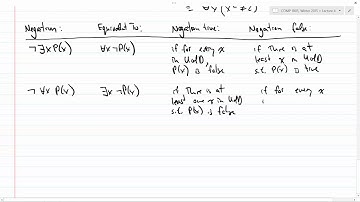 ≡ ∀x (x² ≠ 2)
Negation: Equivalent To: Negation true: Negation false:
¬∃x P(x) ∀x ¬P(x) if for every x in UofD, P(x) is false if There is at least x in UofD s.t. P(x) is true
¬ ∀x P(x) ∃x ¬P(x) if There is at least one x in UofD s.t. P(x) is false if for every x